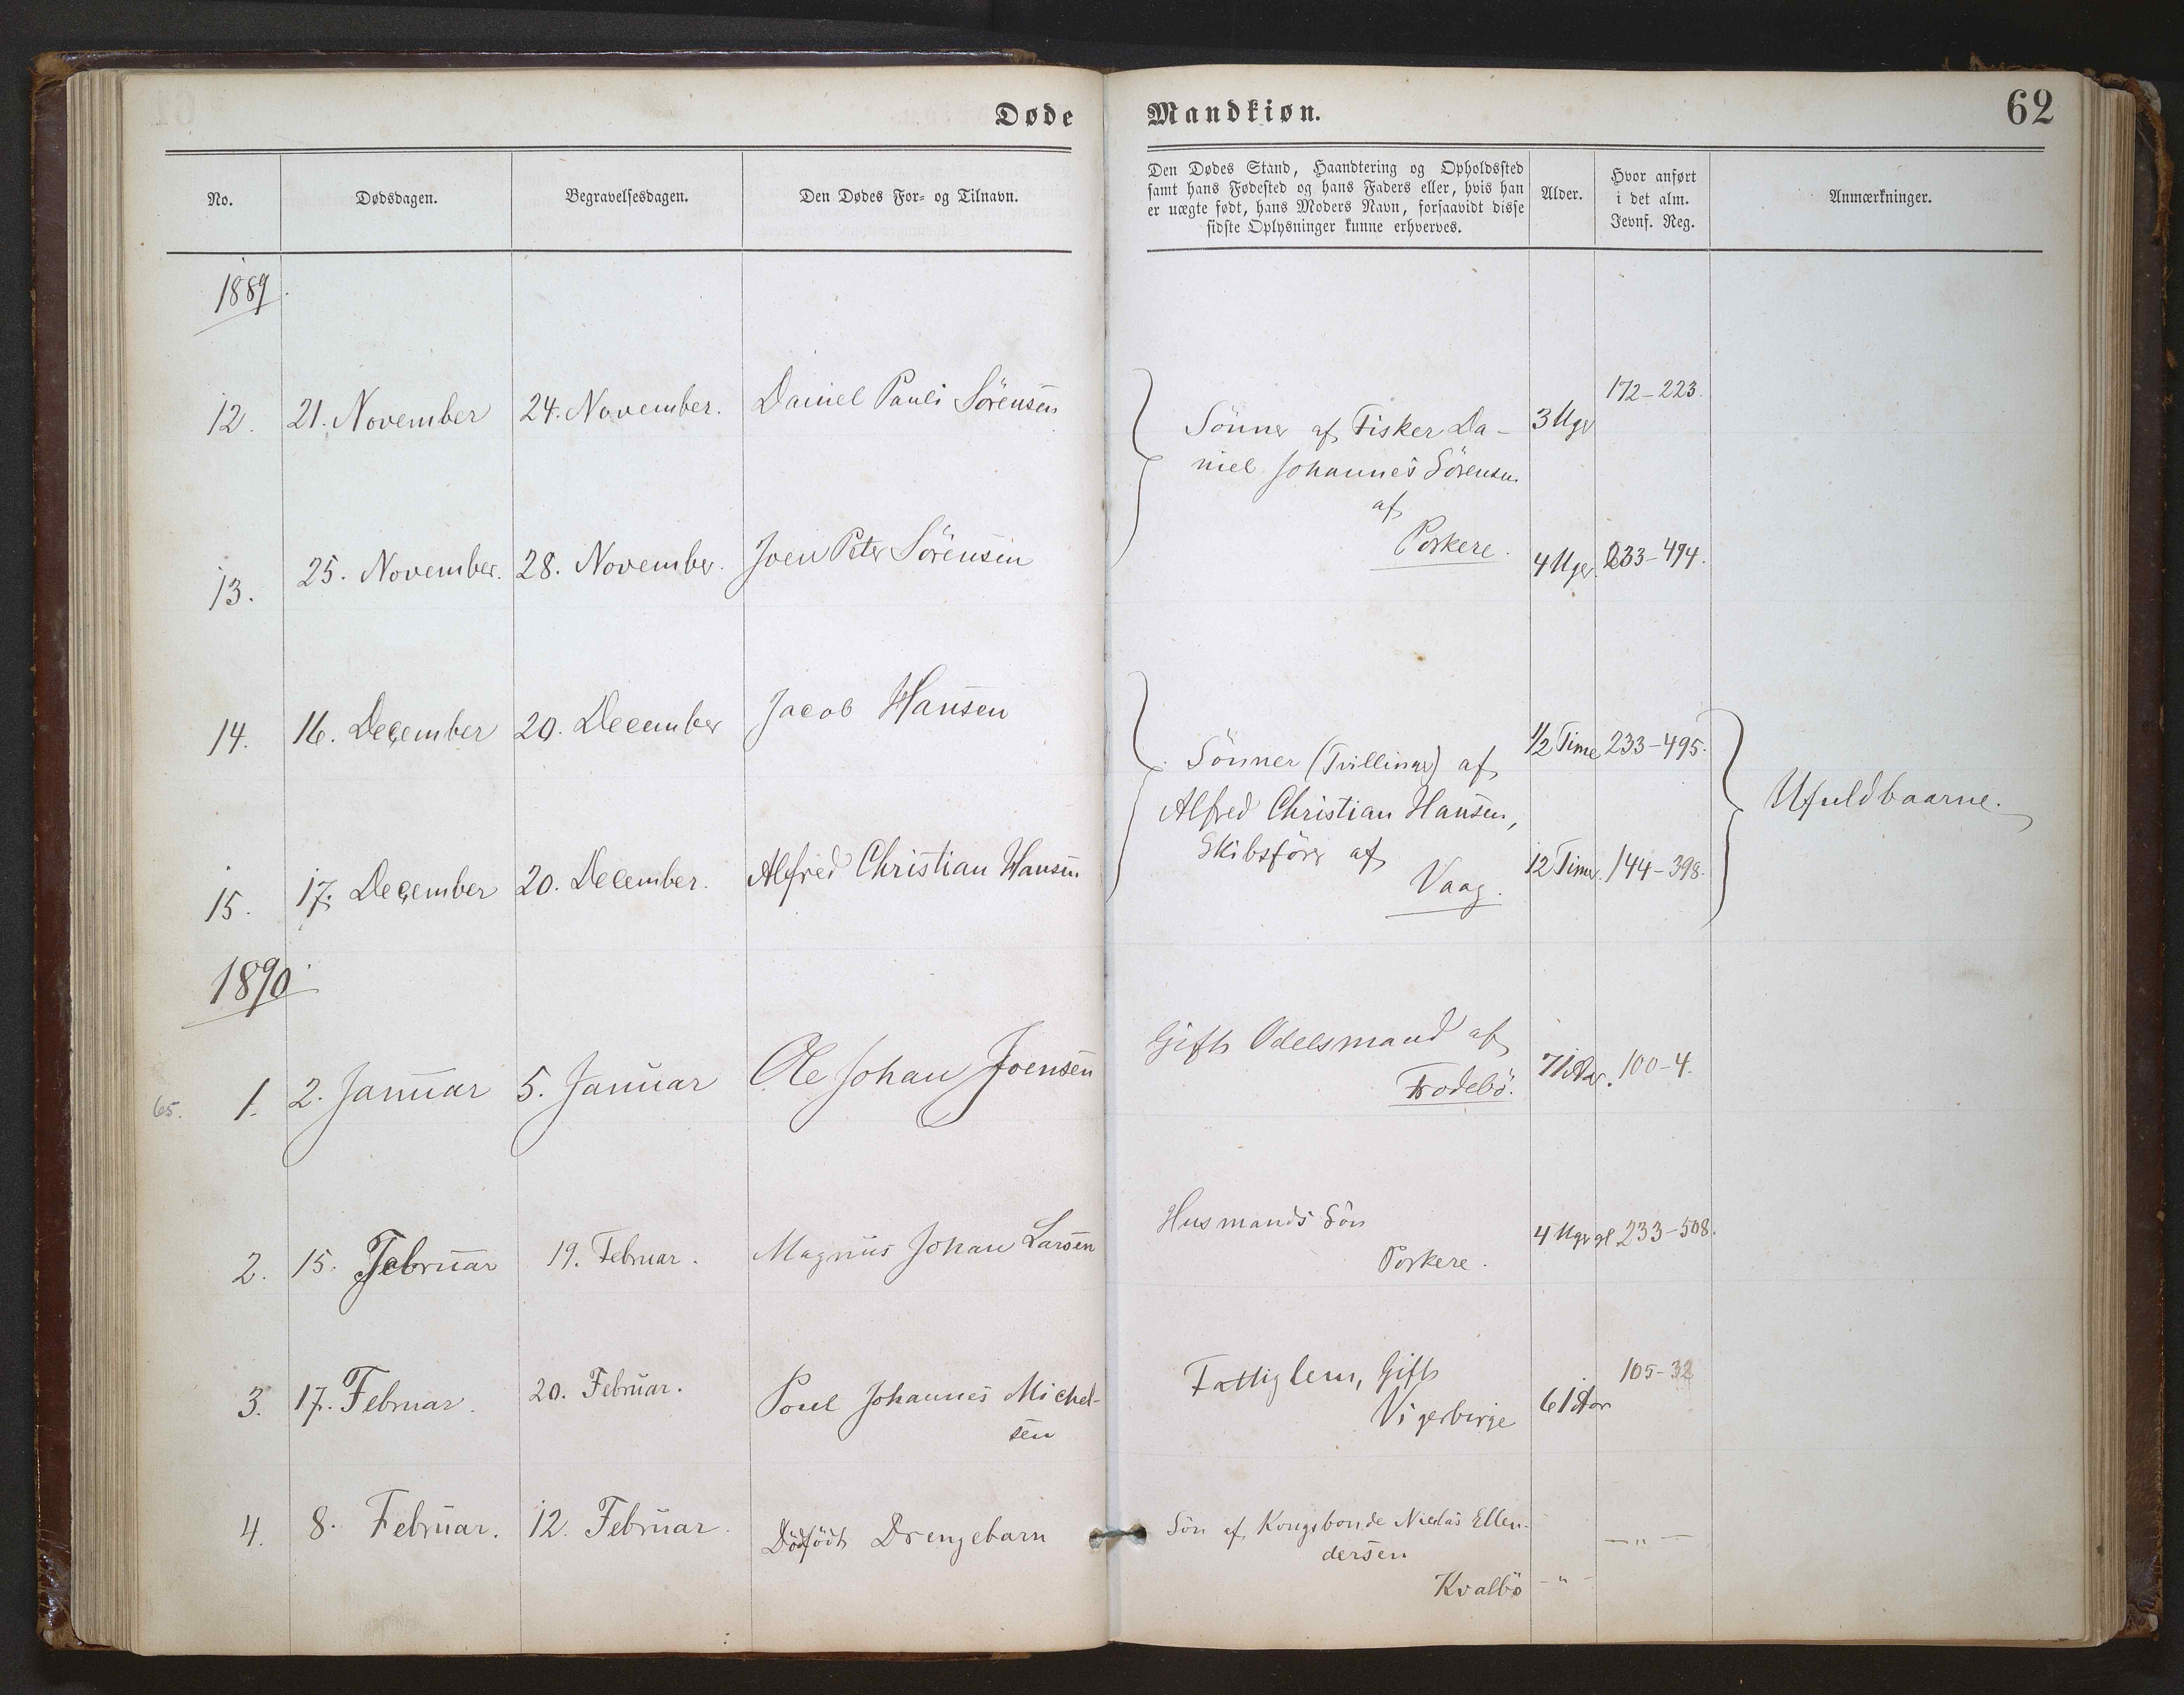 Døde Mandkiøn.
62
No.
Dødsdagen.
Begravelsesdagen.
Den Dødes For- og Tilnavn.
Den Dødes Stand, Haandtering og Opholdssted
samt hans Fødested og hans Faders eller, hvis han
er uægte født, hans Moders Navn, forsaavidt disse
sidste Oplysninger kunne erhverves.
Alder.
Hvor anført
i det alm.
Jevnf. Reg.
Anmærkninger.
1889
12. 21. November 24. November. Daniel Pauli Sörensen
Sönner af Fisker Da-
niel Johannes Sörensen
af
Porkere.
3 Uger
172-223.
13. 25. November. 28. November. Joen Peter Sörensen
4 Uger. 233-494.
14. 16. December 20. December Jacob Hansen
Sönner (Tvillinger) af
Alfred Christian Hansen,
Skibsförer af
Vaag.
1/2 Time 233-495.
Ufuldbaarne.
15. 17. December 20. December. Alfred Christian Hansen
12 Timer. 144-398.
1890
65.
1. 2. Januar 5. Januar Ole Johan Joensen
Gift Odelsmand af
Frodebö.
71 Aar. 100-4.
2. 15. Februar 19. Februar. Magnus Johan Larsen
Husmands Sön
Porkere.
4 Uger gl 233-508.
3. 17. Februar. 20. Februar. Poul Johannes Michel-
sen
Fattiglem, Gift
Vigerbirge
61 Aar
105-32
4. 8. Februar. 12. Februar. Dödfödt Drengebarn
Sön af Kongsbonde Niclas Ellen-
dersen
Kvalbö
-"-
-"-